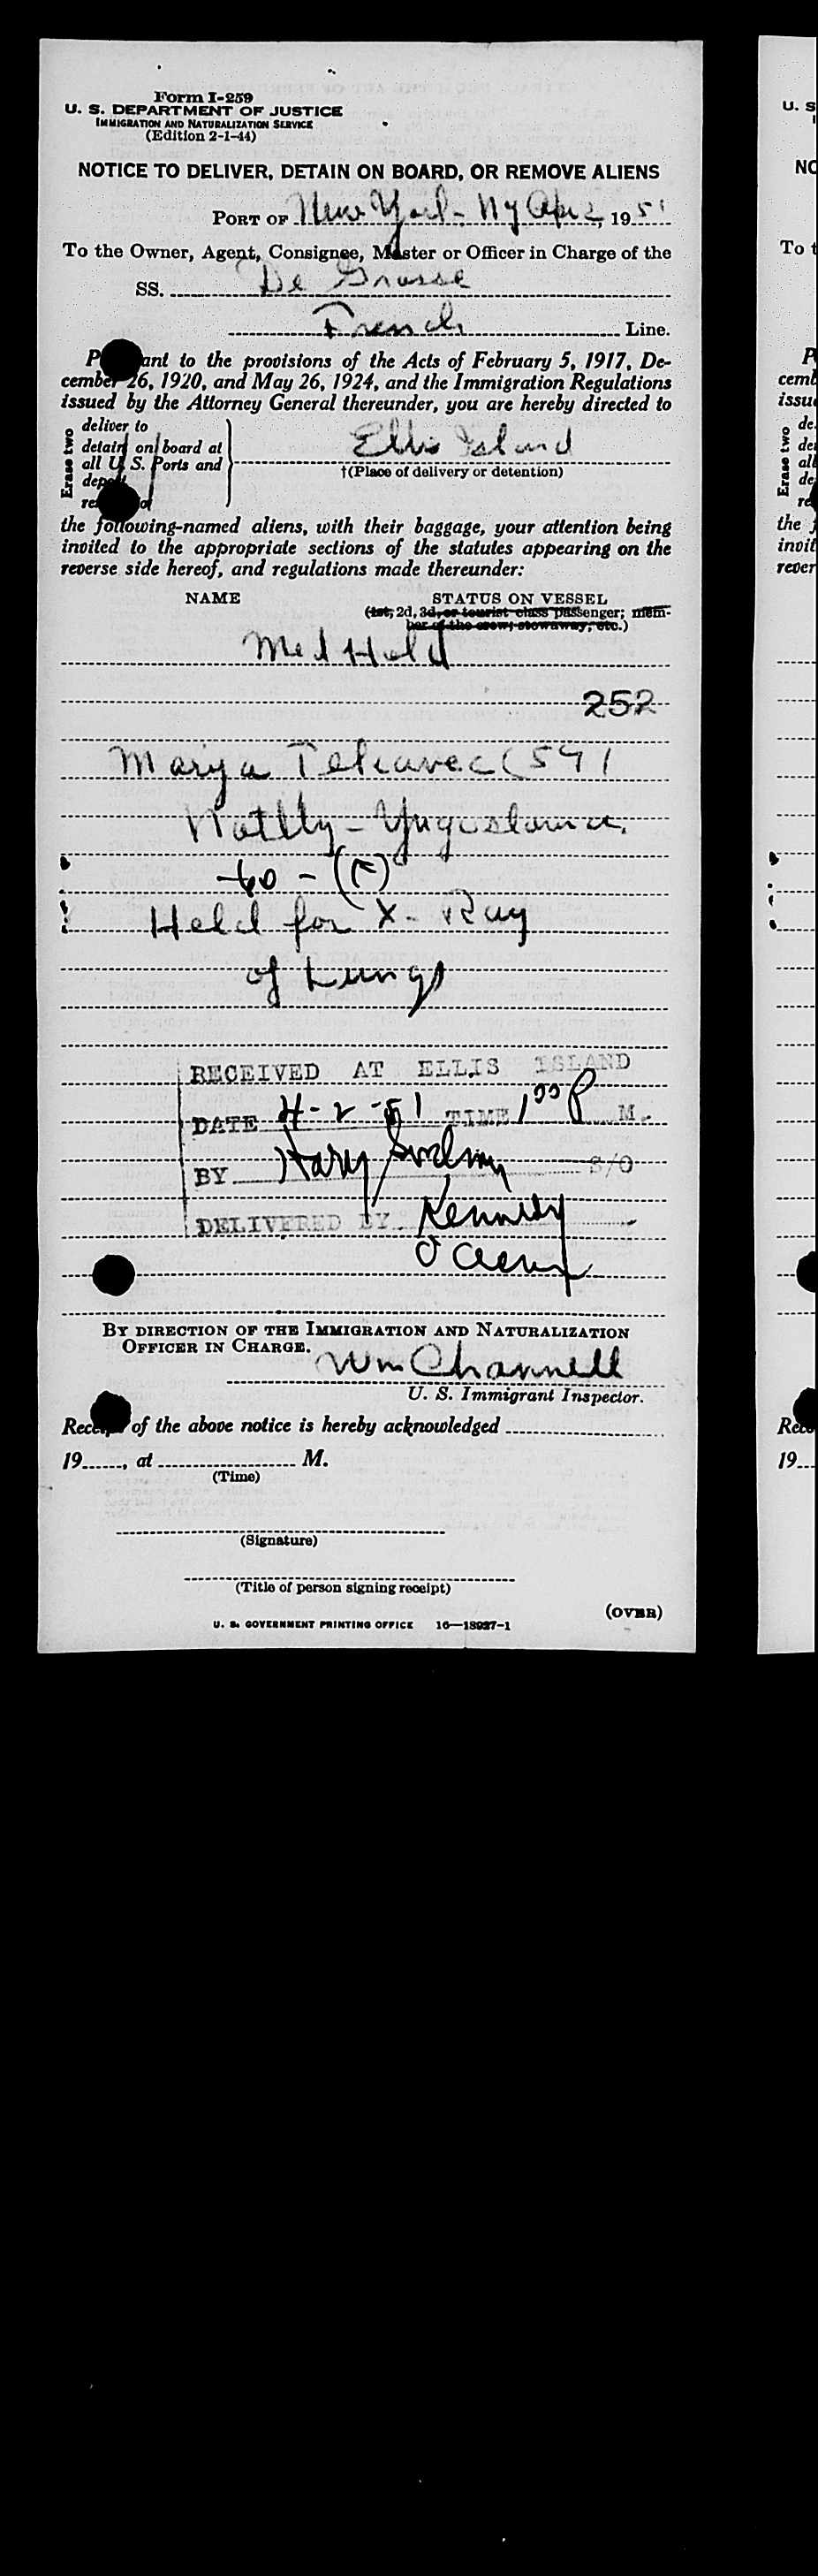 Form I-259
U. S. DEPARTMENT OF JUSTICE
IMMIGRATION AND NATURALIZATION SERVICE
(Edition 2-1-44)
NOTICE TO DELIVER, DETAIN ON BOARD, OR REMOVE ALIENS
PORT OF New York - NY Apr 2, 1951
To the Owner, Agent, Consignee, Master or Officer in Charge of the
SS. De Grasse
French Line.
P ant to the provisions of the Acts of February 5, 1917, De-
cember 26, 1920, and May 26, 1924, and the Immigration Regulations
issued by the Attorney General thereunder, you are hereby directed to
Erase two
deliver to
detain on board at
all U. S. Ports and
Ellis Island
†(Place of delivery or detention)
the following-named aliens, with their baggage, your attention being
invited to the appropriate sections of the statutes appearing on the
reverse side hereof, and regulations made thereunder:
NAME STATUS ON VESSEL
(1st, 2d, 3d, or tourist class passenger; mem-
ber of the crew; stowaway, etc.)
Med Held
252
Marija (59)
Natlty - Yugoslavia
-60 - (F)
Held for X-Ray
of Lungs
RECEIVED AT ELLIS ISLAND
DATE 4-2-51 TIME 1 00 P M.
BY Harry S/O
DELIVERED BY Kennedy
BY DIRECTION OF THE IMMIGRATION AND NATURALIZATION
OFFICER IN CHARGE.
Wm Channell
U. S. Immigrant Inspector.
Receipt of the above notice is hereby acknowledged
19......, at M.
(Time)
(Signature)
(Title of person signing receipt)
(OVER)
U. S. GOVERNMENT PRINTING OFFICE 16—18927-1